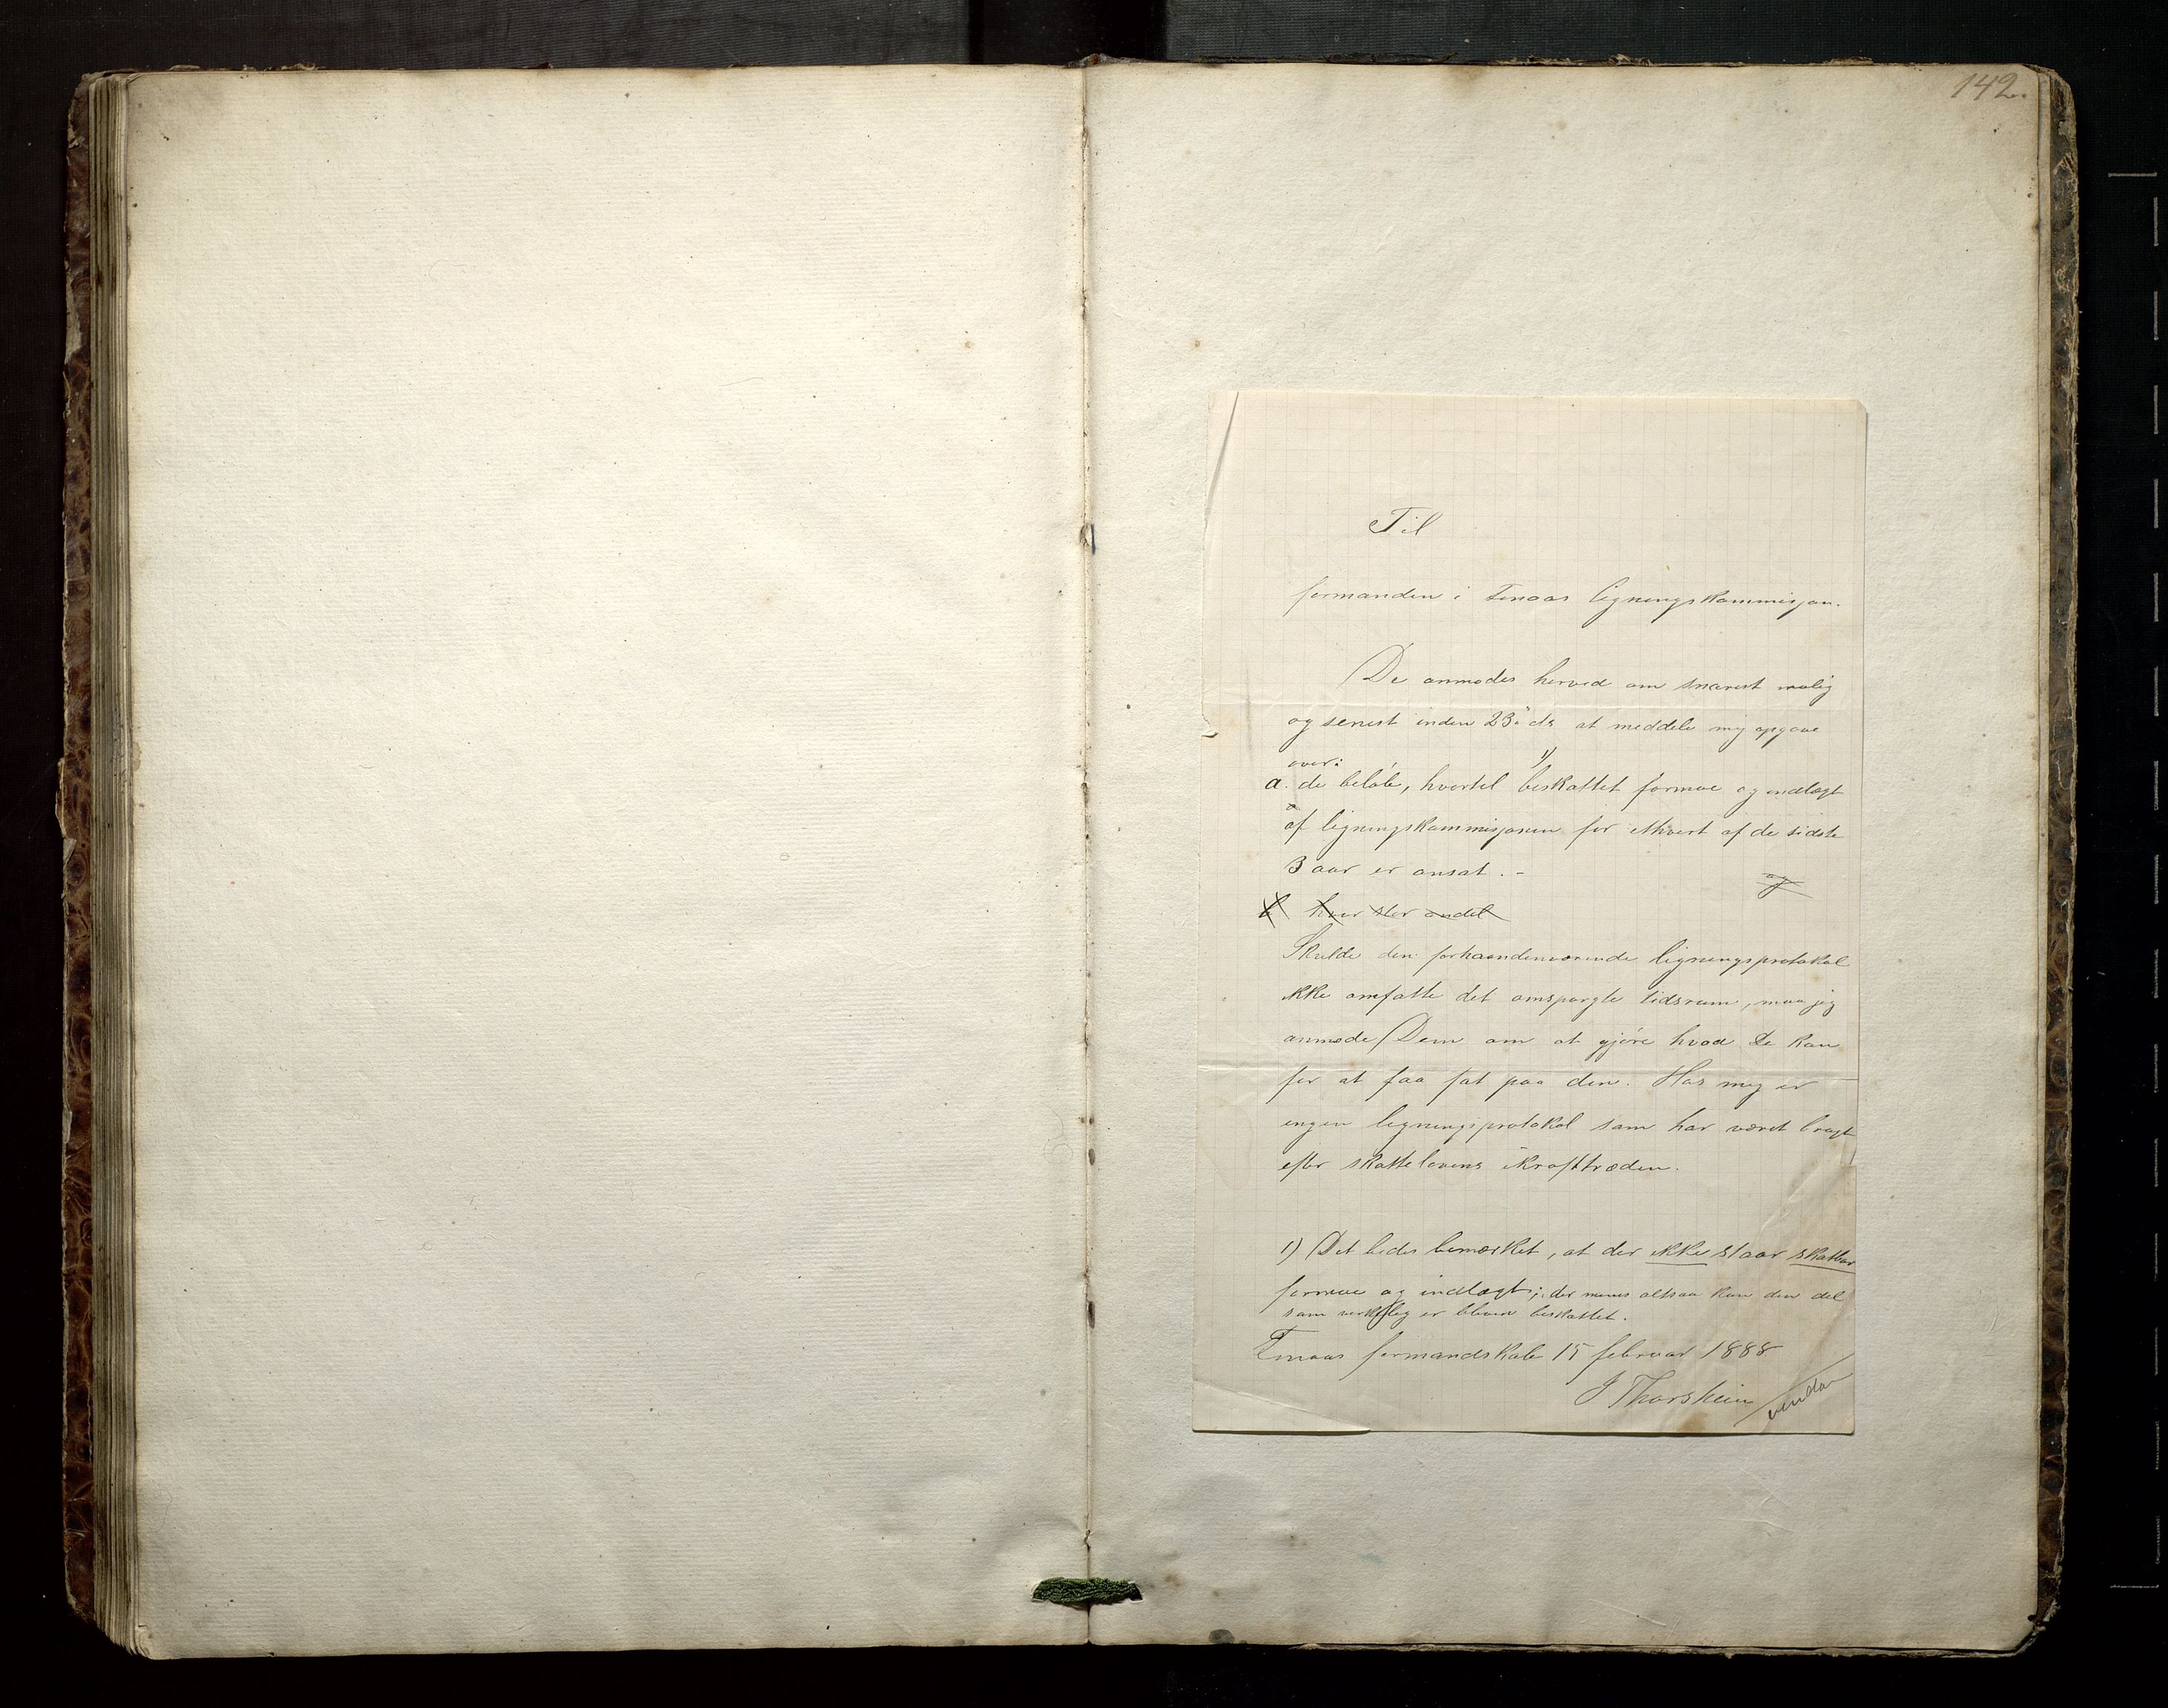 142.
Til
formanden i Finaas ligningskommisjon.
De anmodes herved om snarest mulig
og senest inden 23de ds at meddele mig opgave
over:
a. de beløb, hvortil 1) beskattet formue og indtægt
af ligningskommisjonen for ethvert af de sidste
3 aar er ansat. -
og
b hvor stor andel
Skulde den forhaandenværende ligningsprotokol
ikke omfatte det omspurgte tidsrum, maa jeg
anmode Dem om at gjøre hvad De kan
for at faa fat paa den. Hos mig er
ingen ligningsprotokol som har været brugt
efter skattelovens ikrafttræden.
1) Det bedes bemærket, at der ikke staar skatbar
formue og indtægt; der menes altsaa kun den del
som virkelig er bleven beskattet.
Finaas formandskab 15 februar 1888
J Thorsheim
vendar